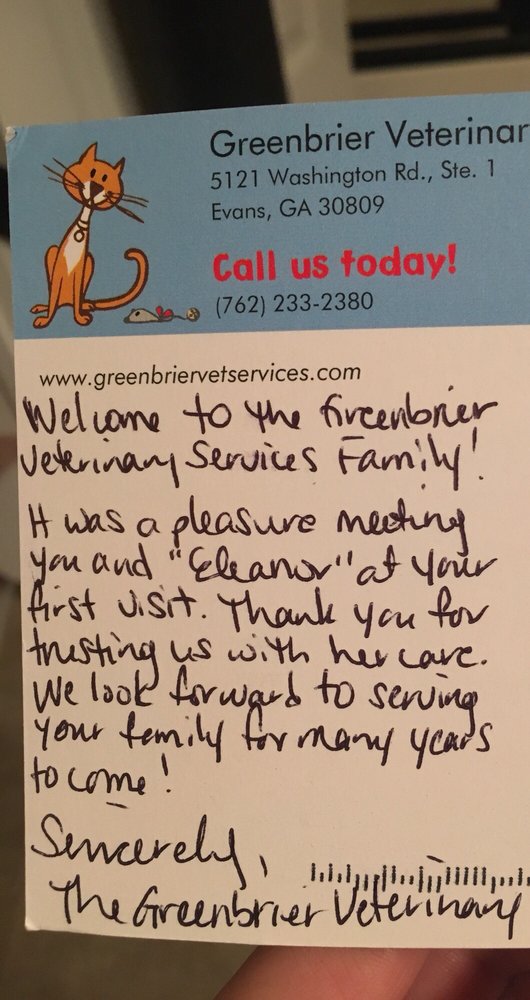 Greenbrier Veterinar
5121 Washington Rd., Ste. 1
Evans, GA 30809
Call us today!
(762) 233-2380
www.greenbriervetservices.com
Welcome to the Greenbrier
Veterinary Services Family!
It was a pleasure meeting
you and "Eleanor" at your
first visit. Thank you for
trusting us with her care.
We look forward to serving
your family for many years
to come!
Sincerely,
The Greenbrier Veterinary